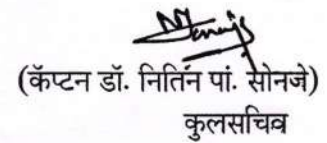 (कॅप्टन डॉ. नितिन पां. सोनजे)
कुलसचिव